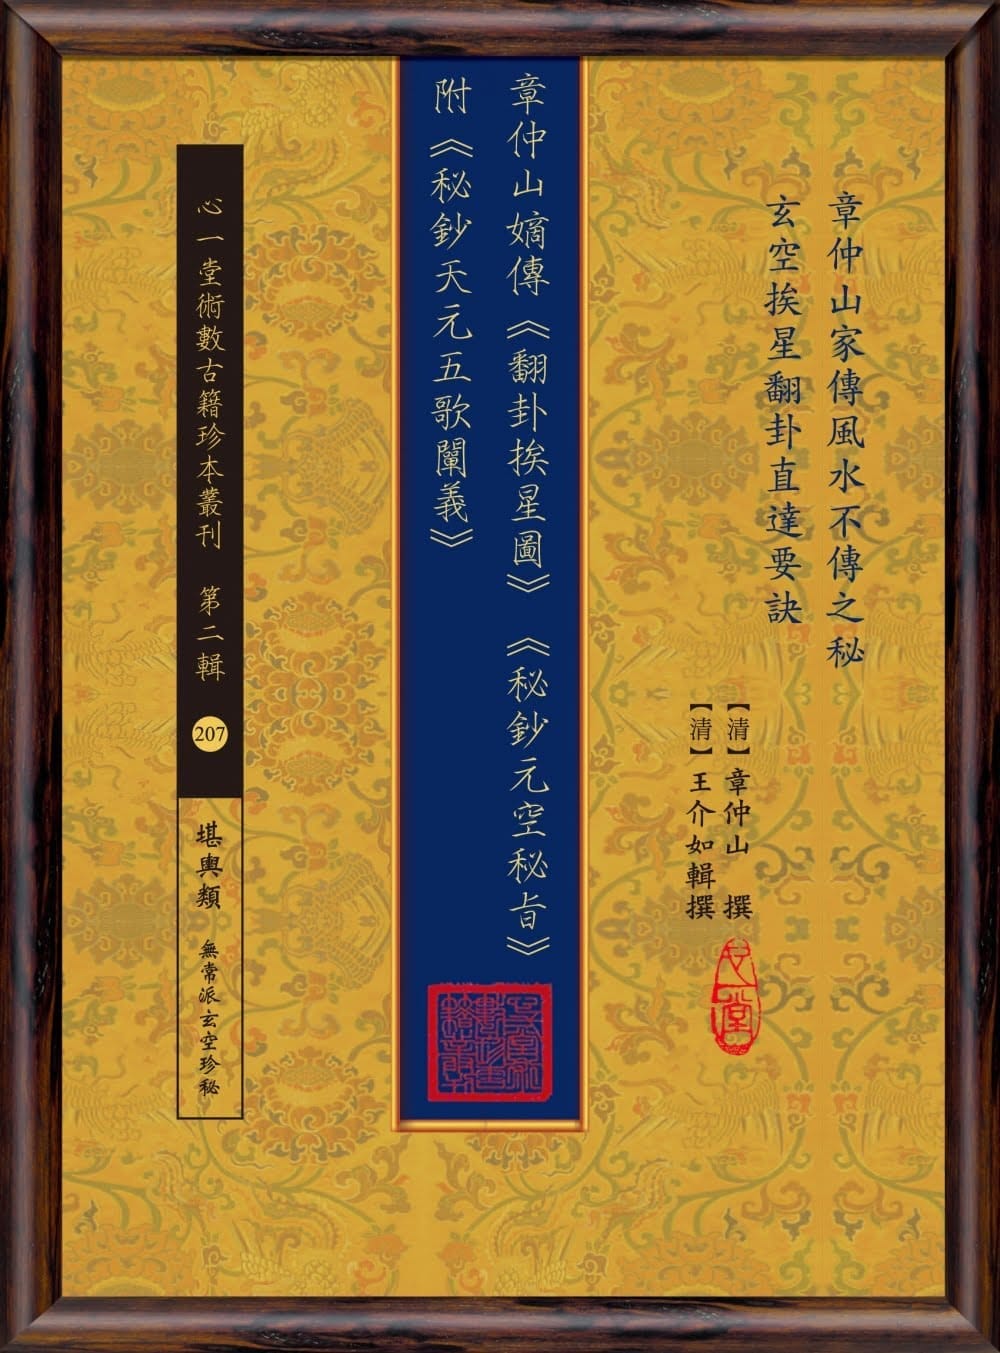 章仲山家傳風水不傳之秘
玄空挨星翻卦直達要訣
【清】章仲山 撰
【清】王介如輯撰
章仲山嫡傳《翻卦挨星圖》《秘鈔元空秘旨》
附《秘鈔天元五歌闡義》
心一堂術數古籍珍本叢刊 第二輯 207
堪輿類 無常派玄空珍秘